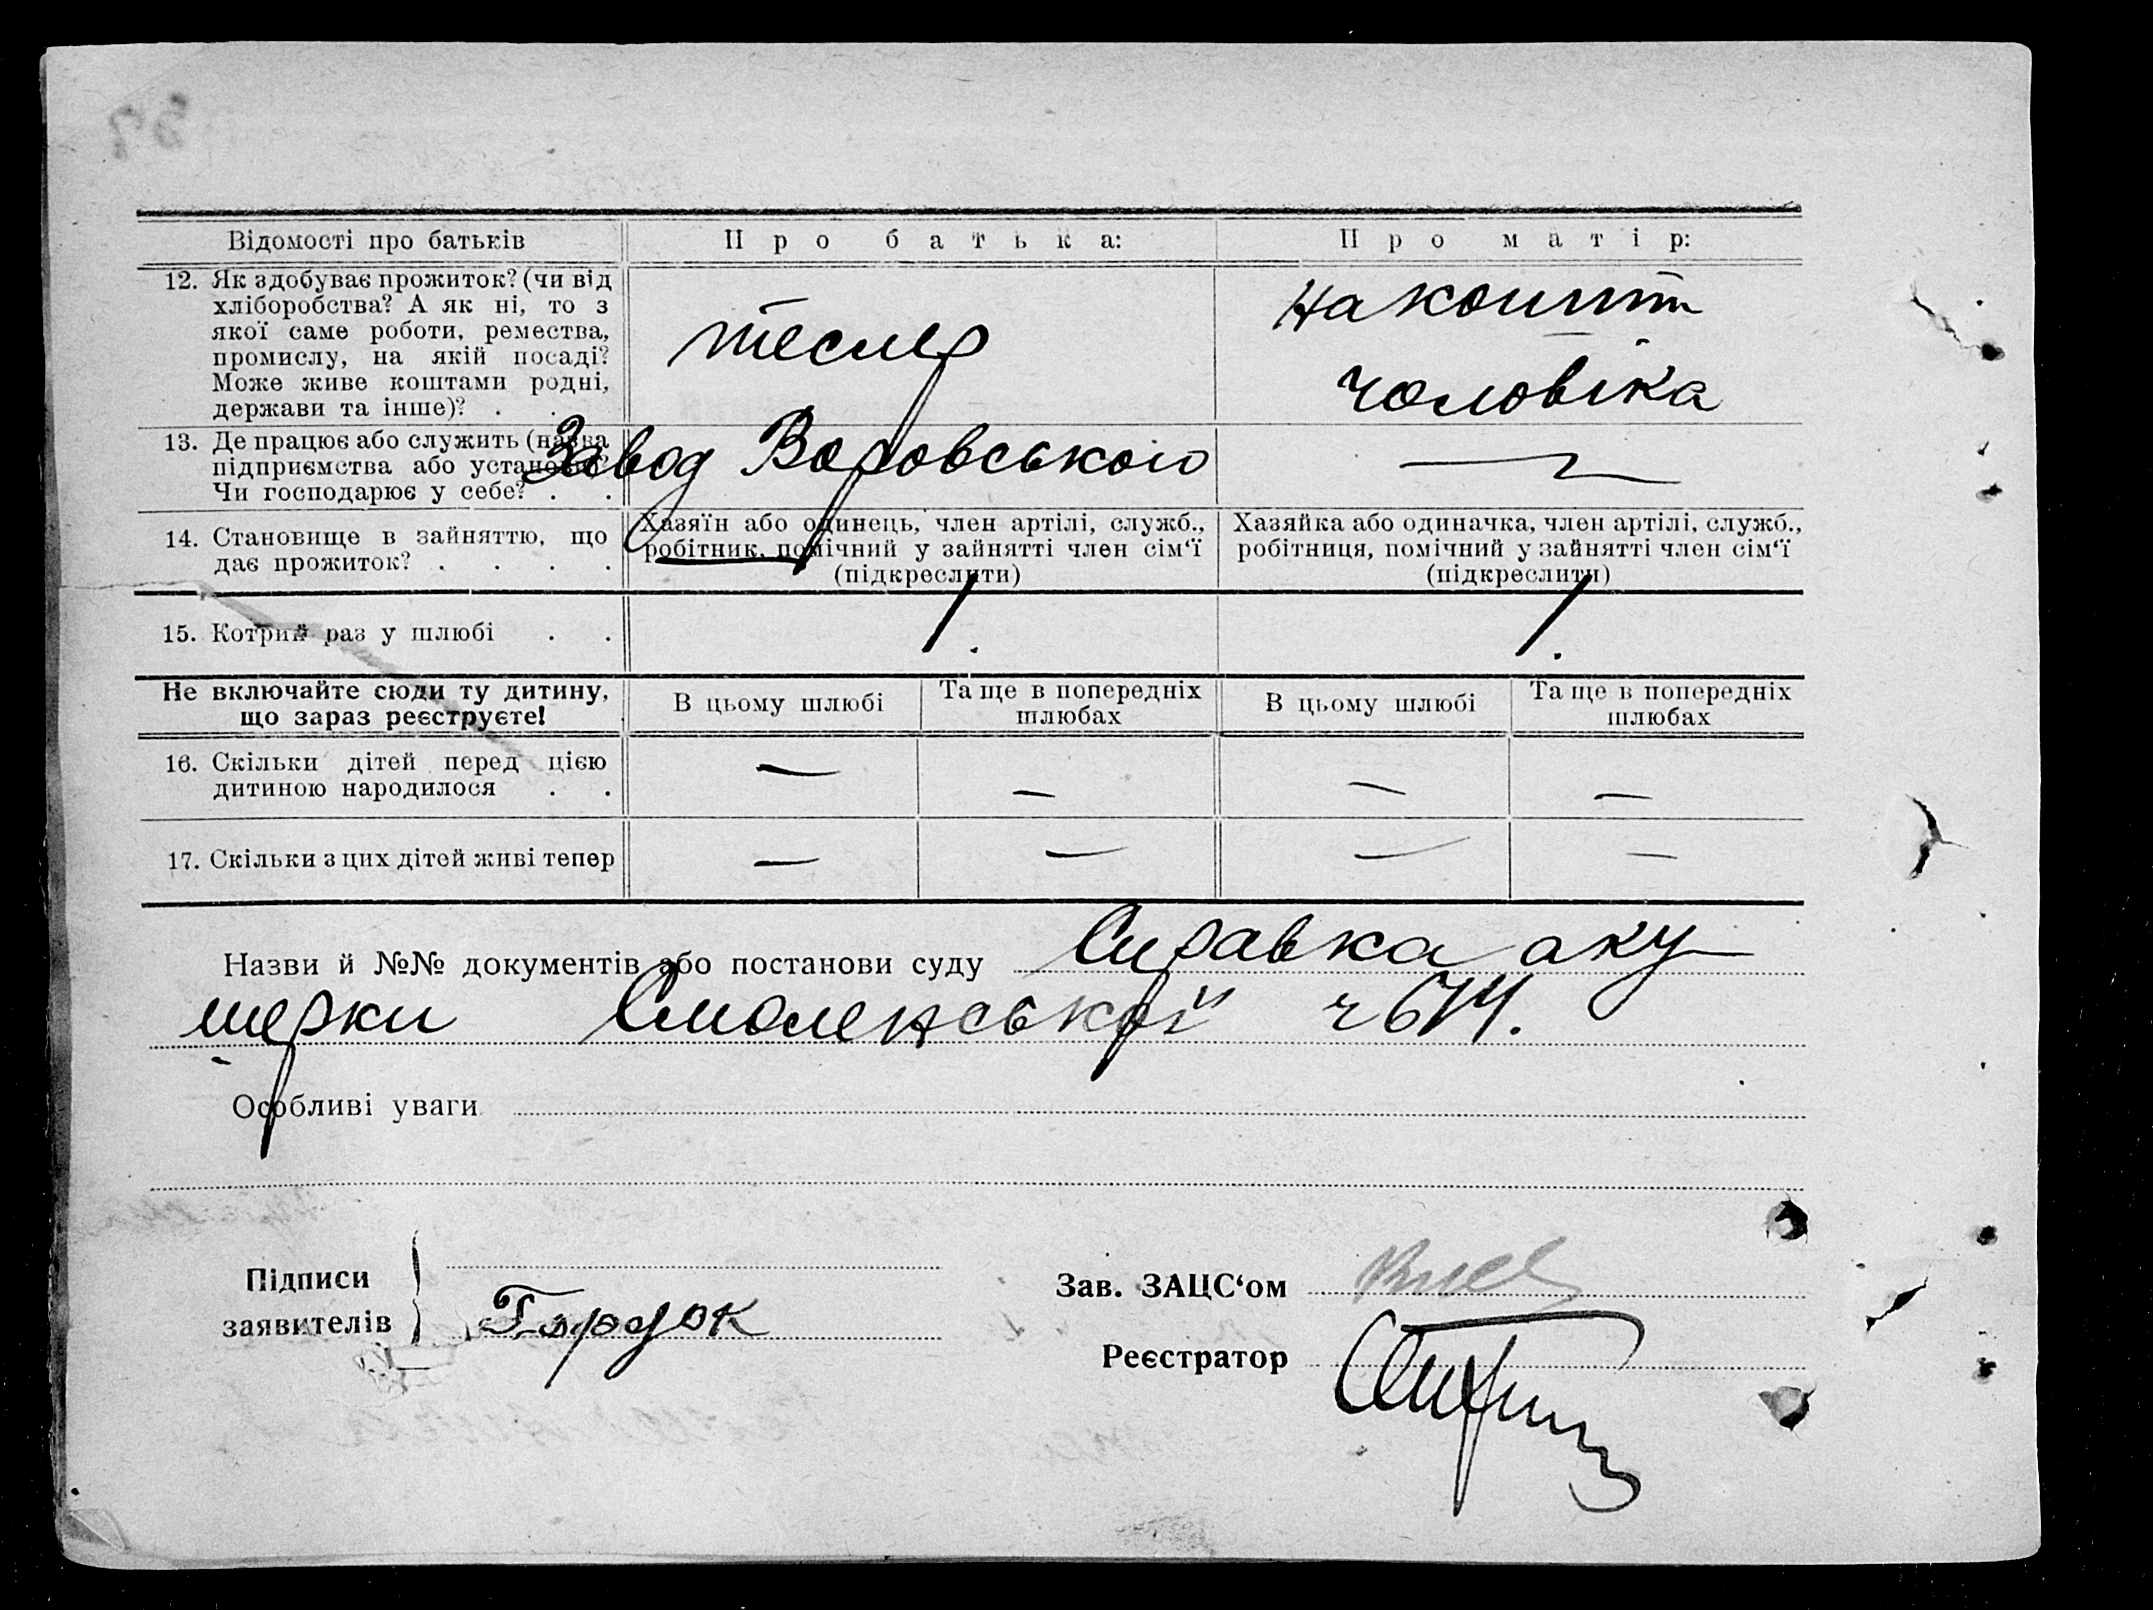 Відомості про батьків
Про батька:
Про матір:
12. Як здобуває прожиток? (чи від
хліборобства? А як ні, то з
якої саме роботи, ремества,
промислу, на якій посаді?
Може живе коштами родні,
держави та інше)? . .
тесляр
На кошти
чоловіка
13. Де працює або служить (назва
підприємства або установи)?
Чи господарює у себе? . .
Завод Воровського
—
14. Становище в зайняттю, що
дає прожиток? . . . .
Хазяїн або одинець, член артілі, служб.,
робітник, помічний у зайнятті член сім‘ї
(підкреслити)
Хазяйка або одиначка, член артілі, служб.,
робітниця, помічний у зайнятті член сім‘ї
(підкреслити)
15. Котрий раз у шлюбі . .
1.
1.
Не включайте сюди ту дитину,
що зараз реєструєте!
В цьому шлюбі
Та ще в попередніх
шлюбах
В цьому шлюбі
Та ще в попередніх
шлюбах
16. Скільки дітей перед цією
дитиною народилося . .
— — — —
17. Скільки з цих дітей живі тепер
— — — —
Назви й №№ документів або постанови суду Справка аку-
шерки Смоленської ч 674.
Особливі уваги
Підписи
заявителів
Городок
Зав. ЗАЦС‘ом
Реєстратор